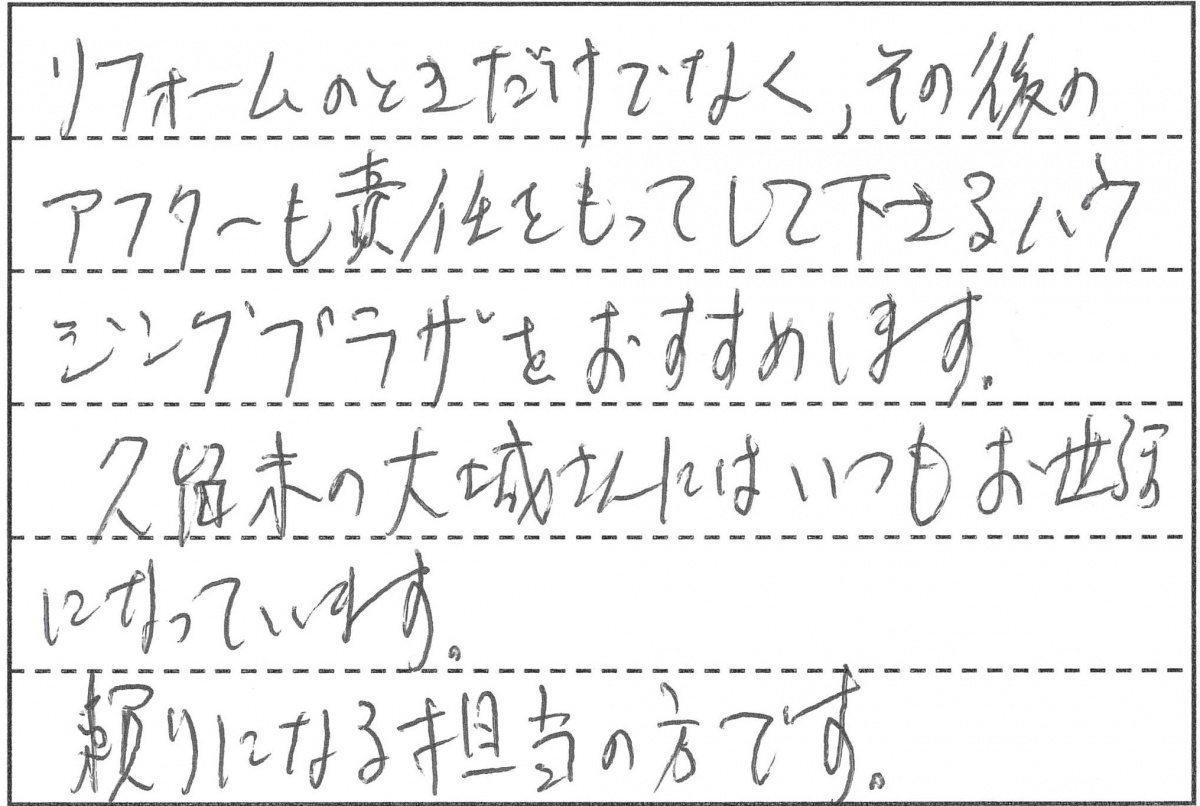 リフォームのときだけでなく,その後の
アフターも責任をもってして下さるハウ
ジングブラザをおすすめします。
久留米の大城さんにはいつもお世話
になっています。
頼りになる担当の方です。